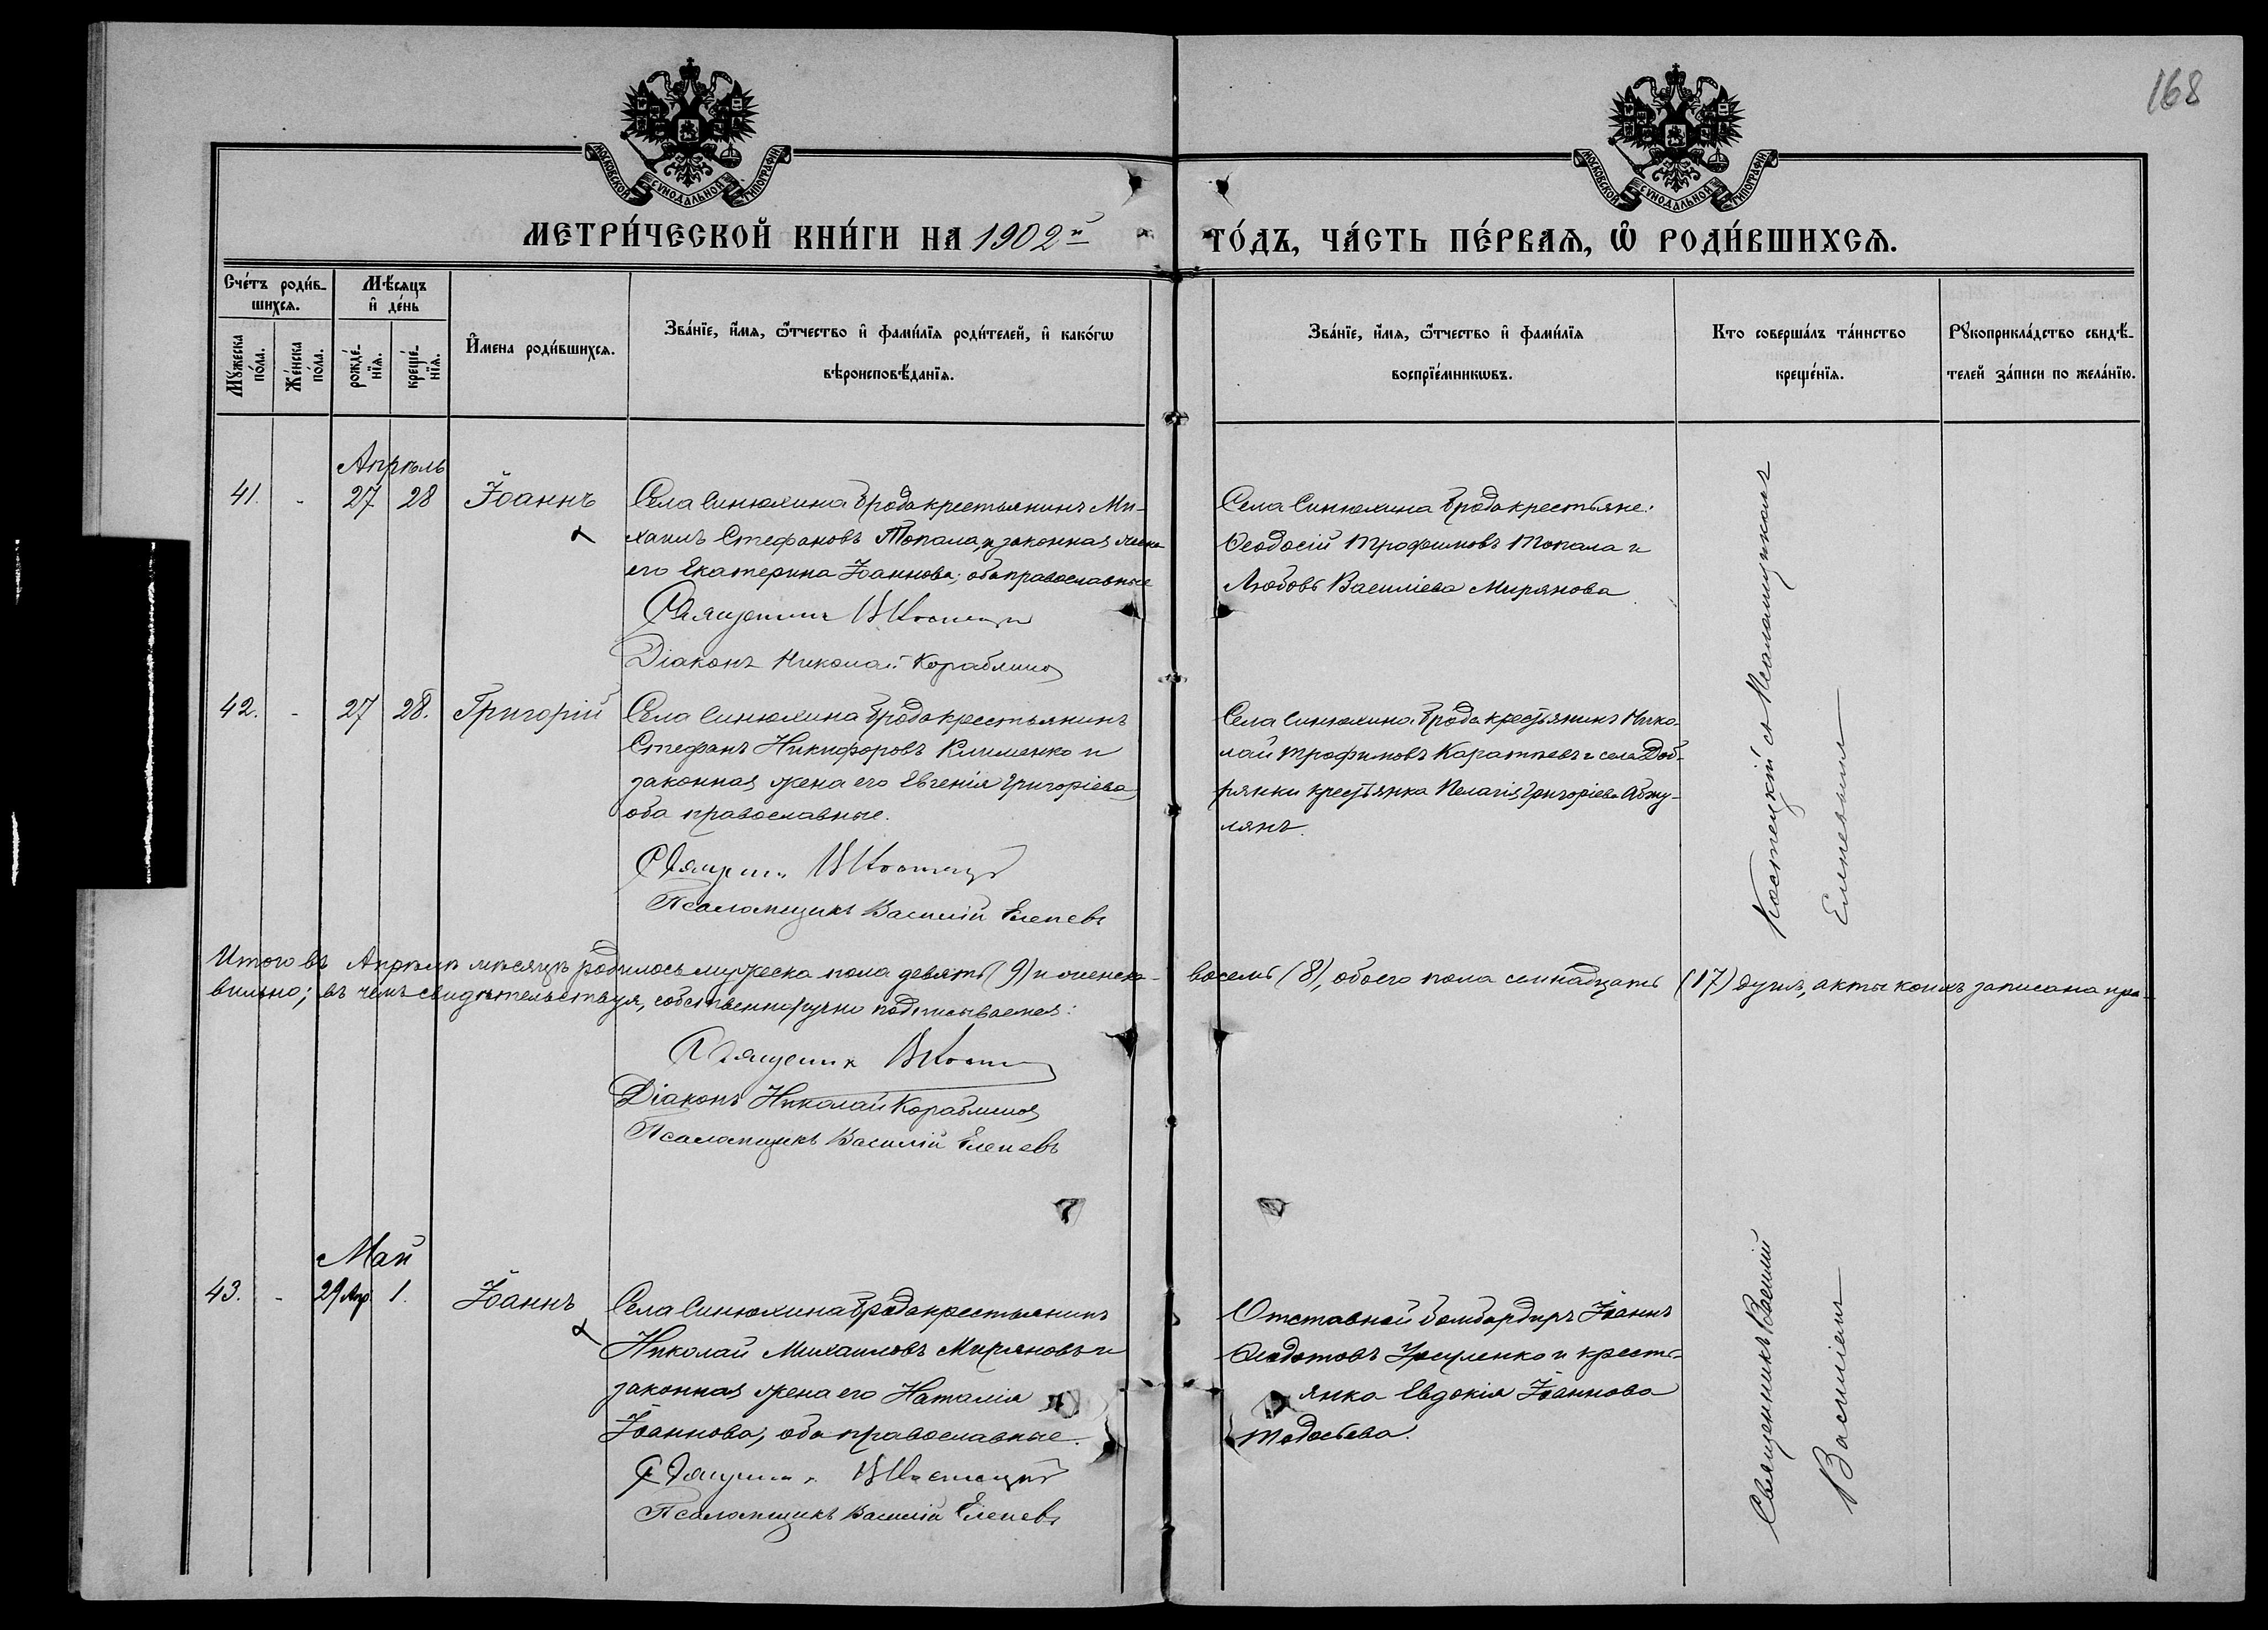 168
МОСКОВСКОЙ СѴНОДАЛЬНОЙ ТИПОГРАФІИ
МОСКОВСКОЙ СѴНОДАЛЬНОЙ ТИПОГРАФІИ
МЕТРИ́ЧЕСКОЙ КНИ́ГИ НА 1902й
ГО́ДЪ, ЧА́СТЬ ПЕ́РВАѦ, Ѿ РОДИ́ВШИХСѦ.
Сче́тъ роди́в-
шихсѧ.
Мꙋ́жеска по́ла.
Же́нска по́ла.
Мѣ́сѧцъ
и҆ де́нь
рожде́-
нїѧ.
креще́-
нїѧ.
И҆мена роди́вшихсѧ.
Зва́нїе, и҆́мѧ, ѻ҆́тчество и҆ фами́лїѧ роди́телей, и҆ како́гѡ
вѣроисповѣ́данїѧ.
Зва́нїе, и҆́мѧ, ѻ҆́тчество и҆ фами́лїѧ
воспрїе́мникѡвъ.
Кто соверша́лъ та́инство
креще́нїѧ.
Рꙋкоприкла́дство свидѣ́-
телей за́писи по жела́нїю.
Апрѣль
41. - 27 28 Іоаннъ
Села Синюхина Брода крестьянинъ Ми-
хаилъ Стефановъ Топала, и законная жена
его Екатерина Іоаннова; оба православные
Священникъ В Костецкій
Діаконъ Николай Кораблинов
Села Синюхина Брода крестьяне:
Ѳеодосій Трофимовъ Топала и
Любовь Василіева Мирянова
42. - 27 28. Григорій
Села Синюхина Брода крестьянинъ
Стефанъ Никифоровъ Клименко и
законная жена его Евгенія Григоріева,
оба православные.
Священникъ В Костецкій
Псаломщикъ Василій Елпевъ
Села Синюхина Брода крестьянинъ Нико-
лай Трофимовъ и села Доб-
рянки крестьянка Пелагія Григоріева
лянъ.
Костецкій съ Псаломщикомъ
Елпевымъ
Итого въ Апрѣлѣ мѣсяцѣ родилось мужеска пола девять (9) и женска - восемь (8), обоего пола семнадцать (17) душъ, акты коихъ записана пра-
вильно; въ чемъ свидѣтельствуя, собственноручно подписываемся:
Священникъ В Костецкій
Діаконъ Николай Кораблинов
Псаломщикъ Василій Елпевъ
Май
43. - 29 Апр. 1. Іоаннъ
Села Синюхина Брода крестьянинъ
Николай Михаиловъ Миряновъ и
законная жена его Наталія
Іоаннова; оба православные.
Священникъ В Костецкій
Псаломщикъ Василій Елпевъ
Отставной бомбардиръ Іоаннъ
Ѳеодотовъ и кресть-
янка Евдокія Іоаннова
Священникъ Василій